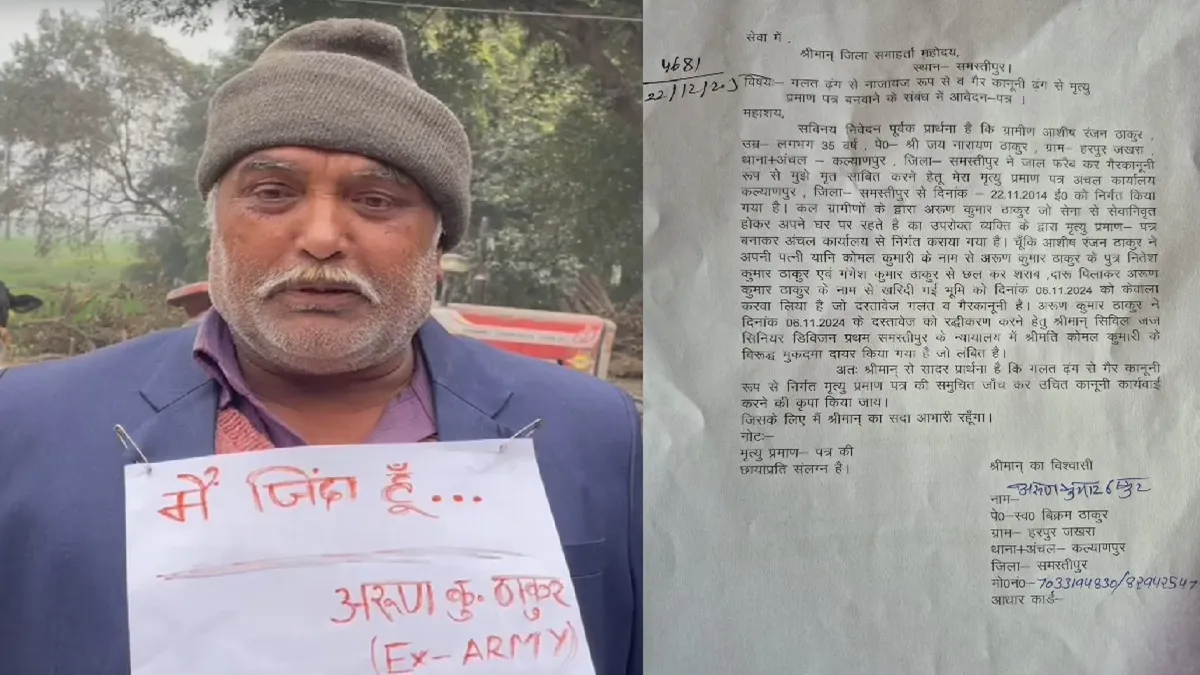 मैं जिंदा हूँ...
अरूण कु. ठाकुर
(Ex-ARMY)
सेवा में ,
श्रीमान् जिला समाहर्ता महोदय,
स्थान– समस्तीपुर।
4681
22/12/20
विषयः– गलत ढ़ंग से नाजायज रूप से व गैर कानूनी ढ़ंग से मृत्यु
प्रमाण पत्र बनवाने के संबंध में आवेदन–पत्र ।
महाशय,
सविनय निवेदन पूर्वक प्रार्थना है कि ग्रामीण आशीष रंजन ठाकुर ,
उम्र– लगभग 35 वर्ष , पे०– श्री जय नारायण ठाकुर , ग्राम– हरपुर जखरा ,
थाना+अंचल – कल्याणपुर , जिला– समस्तीपुर ने जाल फरेब कर गैरकानूनी
रूप से मुझे मृत साबित करने हेतू मेरा मृत्यु प्रमाण पत्र अंचल कार्यालय
कल्याणपुर , जिला– समस्तीपुर से दिनांक – 22.11.2014 ई0 को निर्गत किया
गया है। कल ग्रामीणों के द्वारा अरूण कुमार ठाकुर जो सेना से सेवानिवृत
होकर अपने घर पर रहते है का उपरोक्त व्यक्ति के द्वारा मृत्यु प्रमाण– पत्र
बनाकर अंचल कार्यालय से निर्गत कराया गया है। चूँकि आशीष रंजन ठाकुर ने
अपनी पत्नी यानि कोमल कुमारी के नाम से अरूण कुमार ठाकुर के पुत्र नितेश
कुमार ठाकुर एवं गंगेश कुमार ठाकुर से छल कर शराब ,दारू पिलाकर अरूण
कुमार ठाकुर के नाम से खरिदी गई भूमि को दिनांक 06.11.2024 को केवाला
करवा लिया है जो दस्तावेज गलत व गैरकानूनी है। अरूण कुमार ठाकुर ने
दिनांक 06.11.2024 के दस्तावेज को रद्धीकरण करने हेतु श्रीमान् सिविल जज
सिनियर डिविजन प्रथम समस्तीपुर के न्यायालय में श्रीमति कोमल कुमारी के
विरूद्ध मुकदमा दायर किया गया है जो लंबित है।
अतः श्रीमान् से सादर प्रार्थना है कि गलत ढ़ंग से गैर कानूनी
रूप से निर्गत मृत्यु प्रमाण पत्र की समुचित जाँच कर उचित कानूनी कार्यवाई
करने की कृपा किया जाय।
जिसके लिए मैं श्रीमान् का सदा आभारी रहूँगा।
नोटः–
मृत्यु प्रमाण– पत्र की
छायाप्रति संलग्न है।
श्रीमान् का विश्वासी
अरूण कुमार ठाकुर
नाम–
पे०–स्व0 बिक्रम ठाकुर
ग्राम– हरपुर जखरा
थाना+अंचल– कल्याणपुर
जिला– समस्तीपुर
मो0नं0–7033194830/82942547
आधार कार्ड–